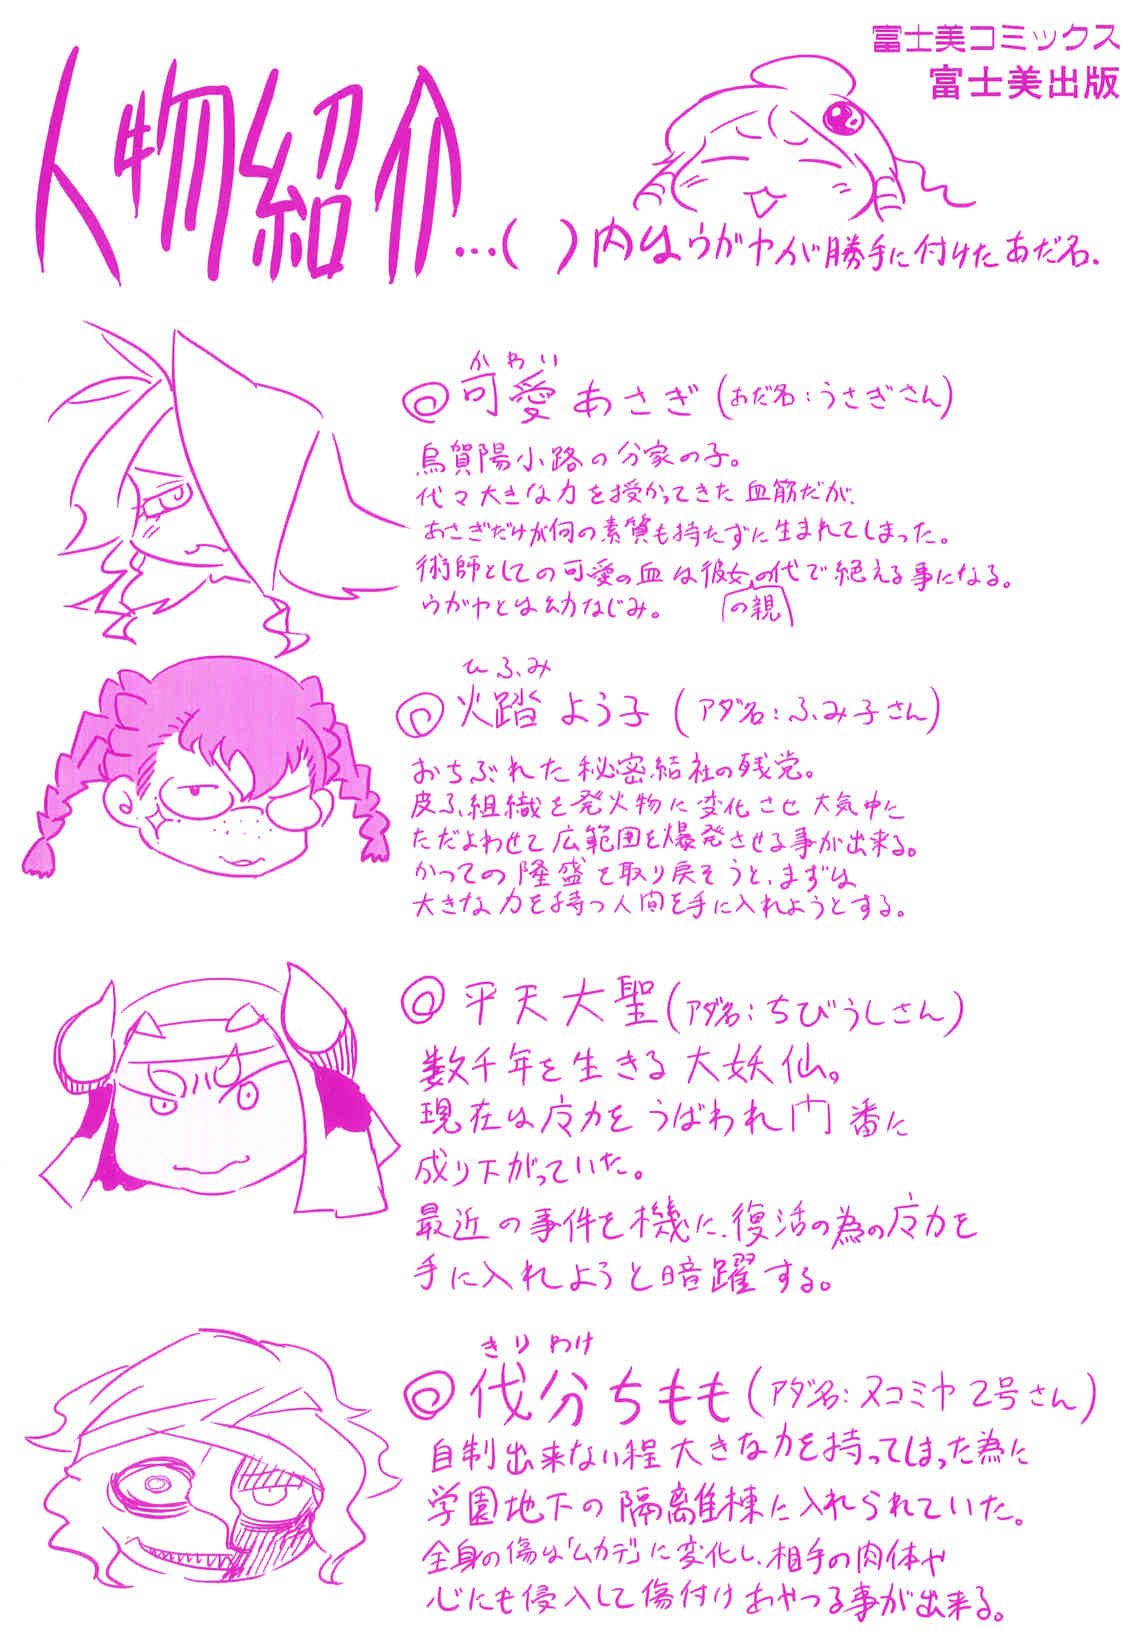 富士美コミックス
富士美出版
人物紹介…( )内はウガヤが勝手に付けたあだ名.
かわい
◎可愛あさぎ(あだ名:うさぎさん)
烏賀陽小路の分家の子。
代々大きな力を授かってきた血筋だが、
あさぎだけが何の素質も持たずに生まれてしまった。
術師としての可愛の血は彼女の代で絶える事になる。
の親
ウガヤとは幼なじみ。
ひふみ
◎火踏よう子(アダ名:ふみ子さん)
おちぶれた秘密結社の残党。
皮ふ組織を発火物に変化させ大気中に
ただよわせて広範囲を爆発させる事が出来る。
かつての隆盛を取り戻そうと、まずは
大きな力を持つ人間を手に入れようとする。
◎平天大聖(アダ名:ちびうしさん)
数千年を生きる大妖仙。
現在は广力をうばわれ門番に
成り下がっていた。
最近の事件を機に、復活の為の广力を
手に入れようと暗躍する。
きりわけ
◎伐分ちもも(アダ名:ヌコミヤ2号さん)
自制出来ない程大きな力を持ってしまった為に
学園地下の隔離棟に入れられていた。
全身の傷は「ムカデ」に変化し、相手の肉体や
心にも侵入して傷付けあやつる事が出来る。